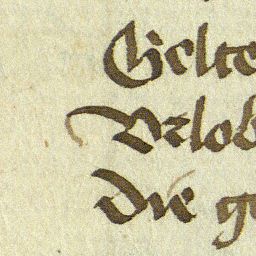 Gelte
Vrlob
Die ge